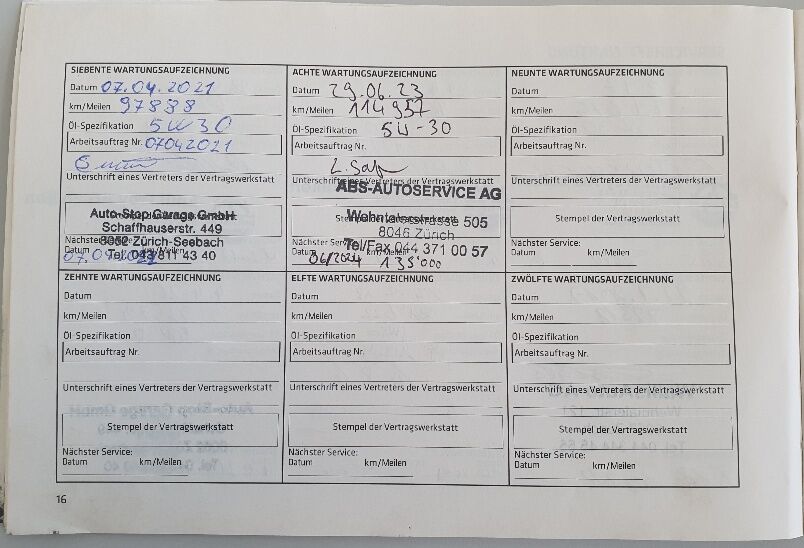 SIEBENTE WARTUNGSAUFZEICHNUNG
Datum 07.04.2021
km/Meilen 97888
Öl-Spezifikation 5W30
Arbeitsauftrag Nr. 07042021
Unterschrift eines Vertreters der Vertragswerkstatt
Auto-Stop Garage GmbH
Schaffhauserstr. 449
8052 Zürich-Seebach
Tel. 043 811 43 40
Nächster Service:
Datum 07.04
ACHTE WARTUNGSAUFZEICHNUNG
Datum 29.06.23
km/Meilen 114957
Öl-Spezifikation 5W-30
Arbeitsauftrag Nr.
Unterschrift eines Vertreters der Vertragswerkstatt
ABS-AUTOSERVICE AG
Wehntalerstrasse 505
8046 Zürich
Tel/Fax 044 371 00 57
Nächster Service:
Datum 06/2024 km/Meilen 135'000
NEUNTE WARTUNGSAUFZEICHNUNG
Datum
km/Meilen
Öl-Spezifikation
Arbeitsauftrag Nr.
Unterschrift eines Vertreters der Vertragswerkstatt
Stempel der Vertragswerkstatt
Nächster Service:
Datum km/Meilen
ZEHNTE WARTUNGSAUFZEICHNUNG
Datum
km/Meilen
Öl-Spezifikation
Arbeitsauftrag Nr.
Unterschrift eines Vertreters der Vertragswerkstatt
Stempel der Vertragswerkstatt
Nächster Service:
Datum km/Meilen
ELFTE WARTUNGSAUFZEICHNUNG
Datum
km/Meilen
Öl-Spezifikation
Arbeitsauftrag Nr.
Unterschrift eines Vertreters der Vertragswerkstatt
Stempel der Vertragswerkstatt
Nächster Service:
Datum km/Meilen
ZWÖLFTE WARTUNGSAUFZEICHNUNG
Datum
km/Meilen
Öl-Spezifikation
Arbeitsauftrag Nr.
Unterschrift eines Vertreters der Vertragswerkstatt
Stempel der Vertragswerkstatt
Nächster Service:
Datum km/Meilen
16